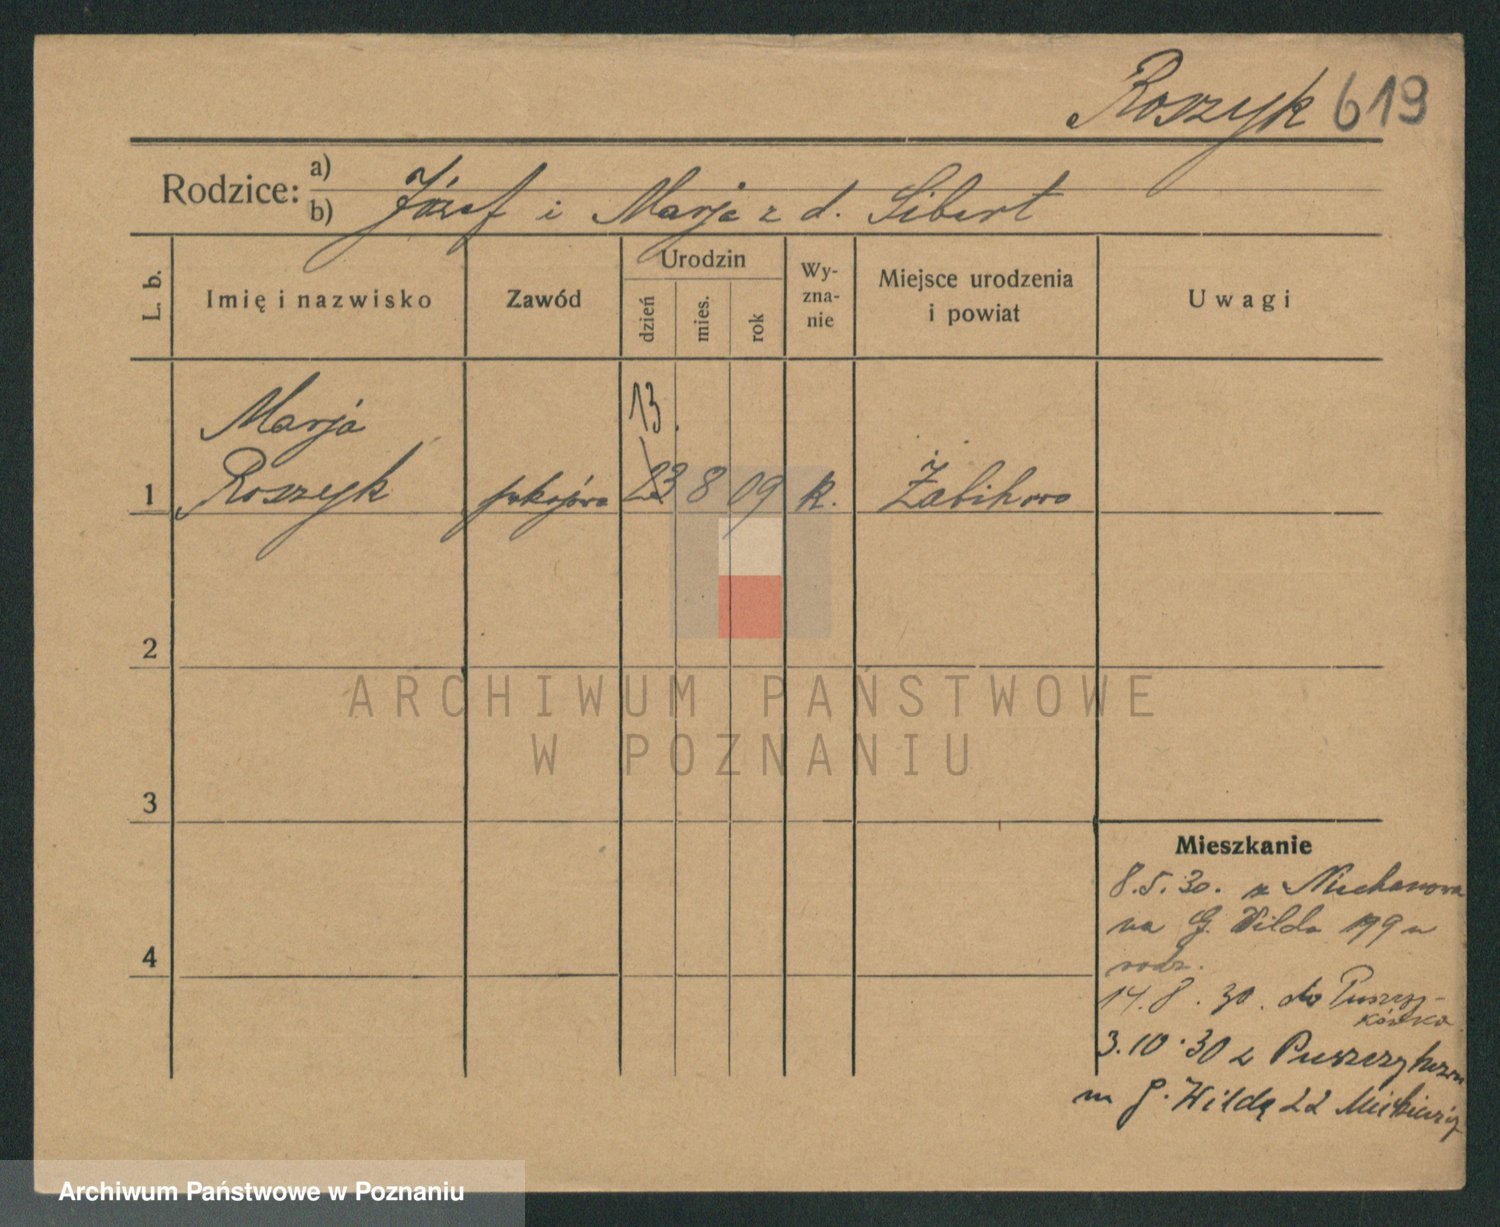 Roszyk 619
Rodzice: a)
b)
Józef i Marja z d. Sibert
L. b.
Imię i nazwisko
Zawód
Urodzin
dzień
mies.
rok
Wy-
zna-
nie
Miejsce urodzenia
i powiat
Uwagi
Marja
13.
1 Roszyk pokojowa 23 8 09 k. Żabikowo
2
3
4
ARCHIWUM PAŃSTWOWE
W POZNANIU
Mieszkanie
8.5.30. z
na G. Wilda 199 u
rodz.
14.8.30. do Puszczy-
kówka
3.10.30 z Puszczykowa
na G. Wildę 22
Archiwum Państwowe w Poznaniu